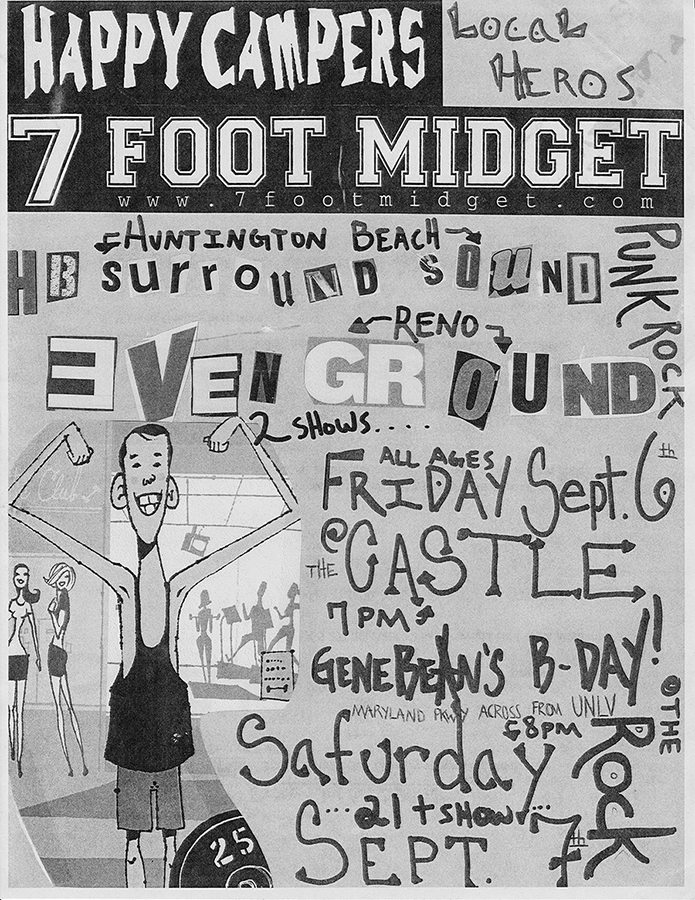 HAPPY CAMPERS
LOCAL
HEROS
7 FOOT MIDGET
www.7footmidget.com
HUNTINGTON BEACH
HB surroUND SOUND
PUNK ROCK
RENO
EVEN GROUND
2 SHOWS.....
Club
ALL AGES
FRIDAY Sept. 6th
@ THE CASTLE
7PM
GENEBEAN'S B-DAY!
MARYLAND PKWY ACROSS FROM UNLV
8PM
@ THE ROCK
Saturday
...21+ SHOW...
SEPT. 7th
25